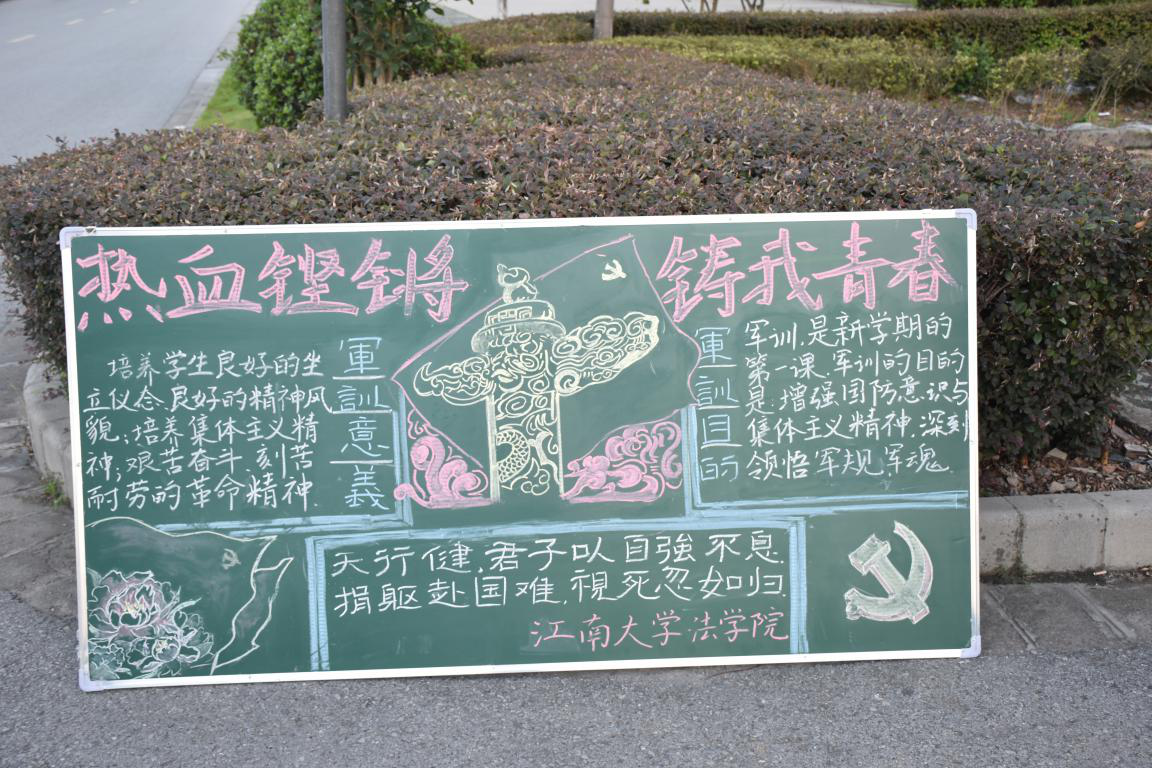 热血铿锵 铸我青春
軍訓意義
培养学生良好的坐
立仪念.良好的精神风
貌;培养集体主义精
神;艰苦奋斗.刻苦
耐劳的革命精神.
軍訓目的
军训.是新学期的
第一课.军训的目的
是:增强国防意识与
集体主义精神,深刻
领悟军规军魂.
天行健.君子以自強不息
捐躯赴国难,視死忽如归.
江南大学法学院